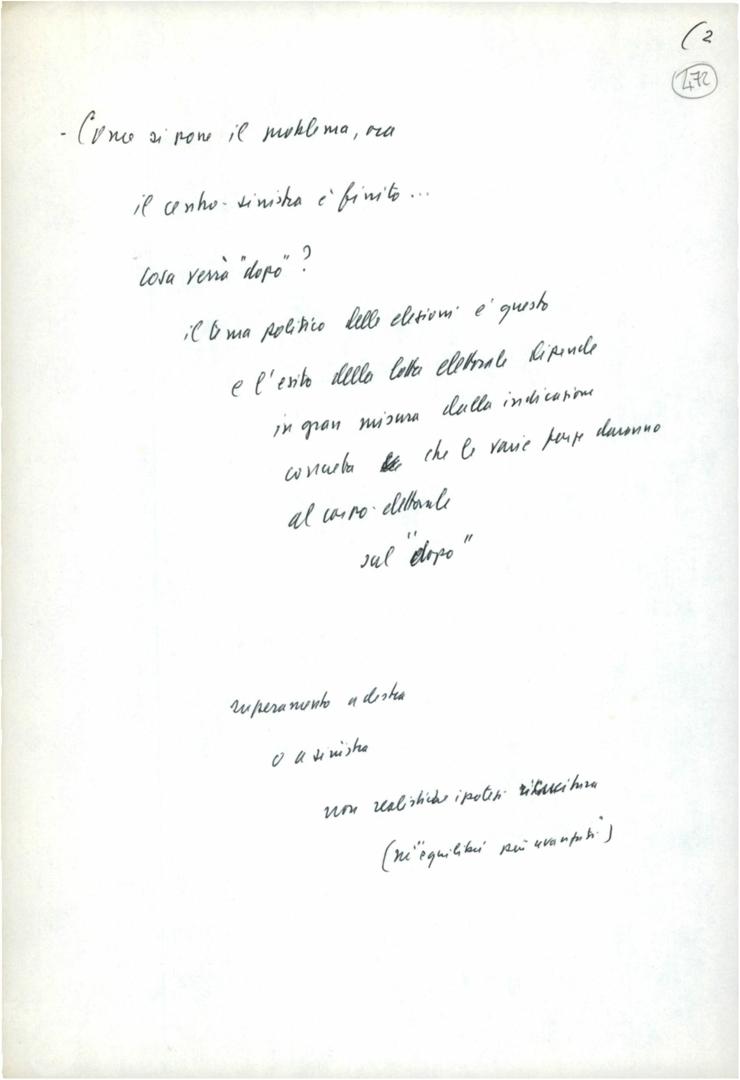 (2
472
- Come si pone il problema, ora
il centro-sinistra è finito...
Cosa verrà "dopo"?
il tema politico delle elezioni è questo
e l'esito della lotta elettorale dipende
in gran misura dalla indicazione
concreta che le varie forze daranno
al corpo elettorale
sul "dopo"
superamento a destra
o a sinistra
non realistiche ipotesi ricucitura
(né "equilibri più avanzati")